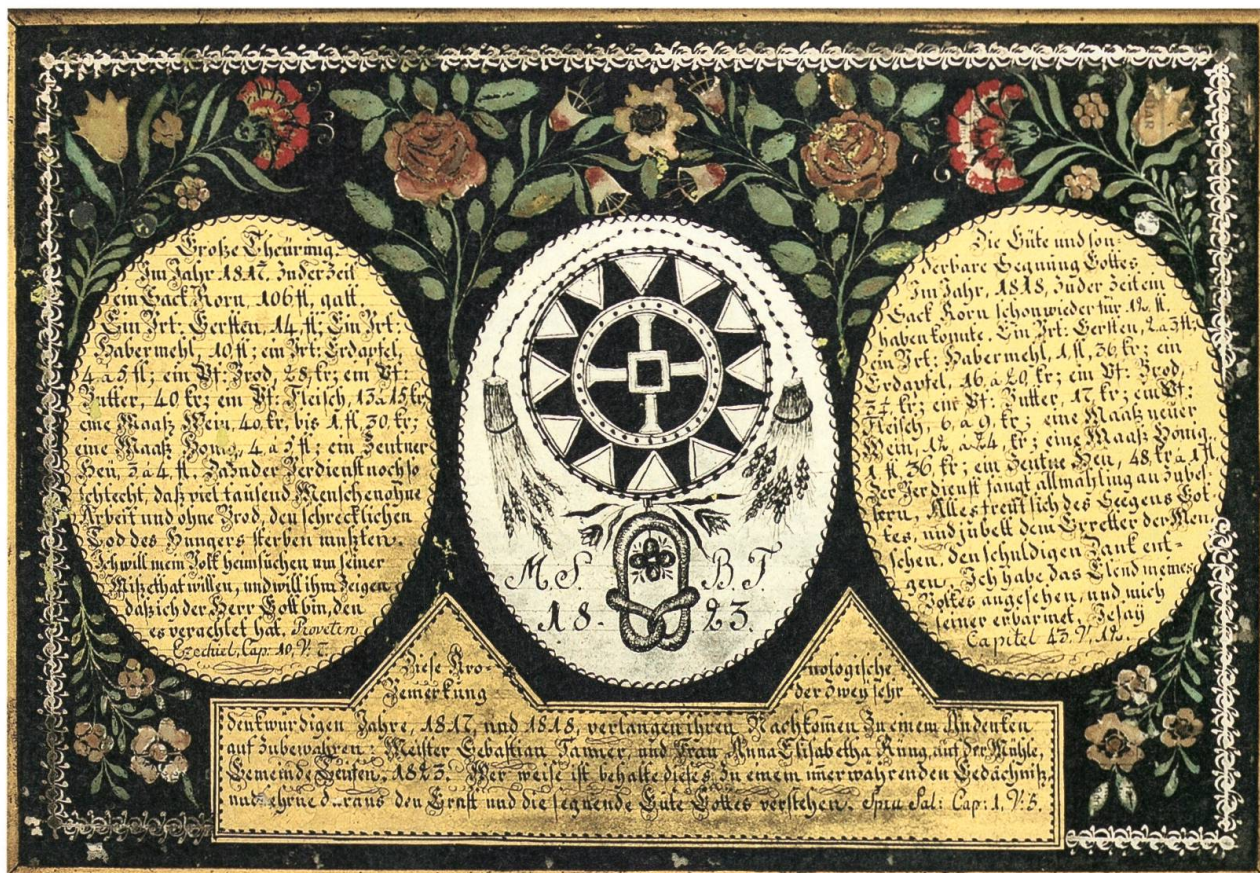 Große Theürung.
Im Jahr 1817. Zu der Zeit
ein Sack Korn 106 fl, galt.
Ein Vrt: Gersten, 14 fl; Ein Vrt:
Habermehl, 10 fl; ein Vrt: Erdäpfel,
4 à 5 fl; ein Pf: Brod, 28, kr; ein Pf:
Butter, 40 kr; ein Pf: Fleisch, 13 à 15 kr
eine Maaß Wein, 40 kr, bis 1 fl, 30 kr;
eine Maaß Honig, 4 à 5 fl; ein Zentner
Heü, 3 à 4 fl. Da der Verdienst noch so
schlecht daß viel tausend Menschen ohne
Arbeit und ohne Brod, den schrecklichen
Tod des Hungers sterben mußten.
Ich will mein Volk heimsüchen um seiner
Mißethat willen, und will ihm Zeigen
daß ich der Herr Gott bin, den
es verachtet hat. Proveten
Ezechiel, Cap: 10, V:
M. S. B. T.
18-23.
Die Güte und son-
derbare Segnung Gottes.
Im Jahr, 1818, Zu der Zeit ein
Sack Korn schon wieder für 12 fl.
haben konnte. Ein Vrt: Gersten, 2 à 3 fl;
ein Vrt: Habermehl, 1 fl, 36 kr; ein
Erdäpfel, 16 à 20 kr; ein Pf: Brod,
kr; ein Pf: Butter, 17 kr; ein Pf:
Fleisch, 6 à 9 kr; eine Maaß neüer
Wein, 12 à 24 kr; eine Maaß Honig,
1 fl, 36 kr; ein Zentne Heü, 48 kr à 1 fl.
Der Verdienst fangt allmähling an zu bes-
sern, Alles freüt sich des Seegens Got-
tes, und jubelt dem Erretter der Men-
schen, den schuldigen Dank ent-
gen. Ich habe das Elend meines
Volkes angesehen, und mich
seiner erbarmet, Jesay
Capitel 43. V. 12.
Diese Kro- nologische
Bemerkung der Zwey sehr
denkwürdigen Jahre, 1817, und 1818, verlangen ihren Nachkom̄en Zu einem Andenken
auf zubewahren: Meister Sebastian Tanner und Frau Anna Elisabetha Kung, auf der Mühle,
Gemeinde Teufen, 1823. Wer weise ist behalte dieses Zu einem im̄erwährenden Gedächtniß,
und lehrne d..raus den Ernst und die segnende Güte Gottes verstehen. Spru Sal: Cap: 1, V: 5.